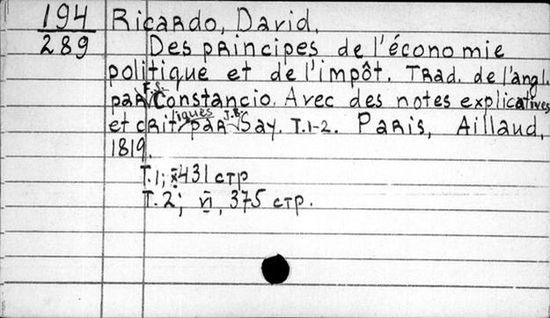 194
289
Ricardo, David.
Des principes de l'économie
politique et de l'impôt. Trad. de l'angl.
par F.S. Constancio. Avec des notes explicatives
et critiques par J.B. Say. T.1-2. Paris, Aillaud,
1819.
T.1; 431 стр
T.2; VI, 375 стр.